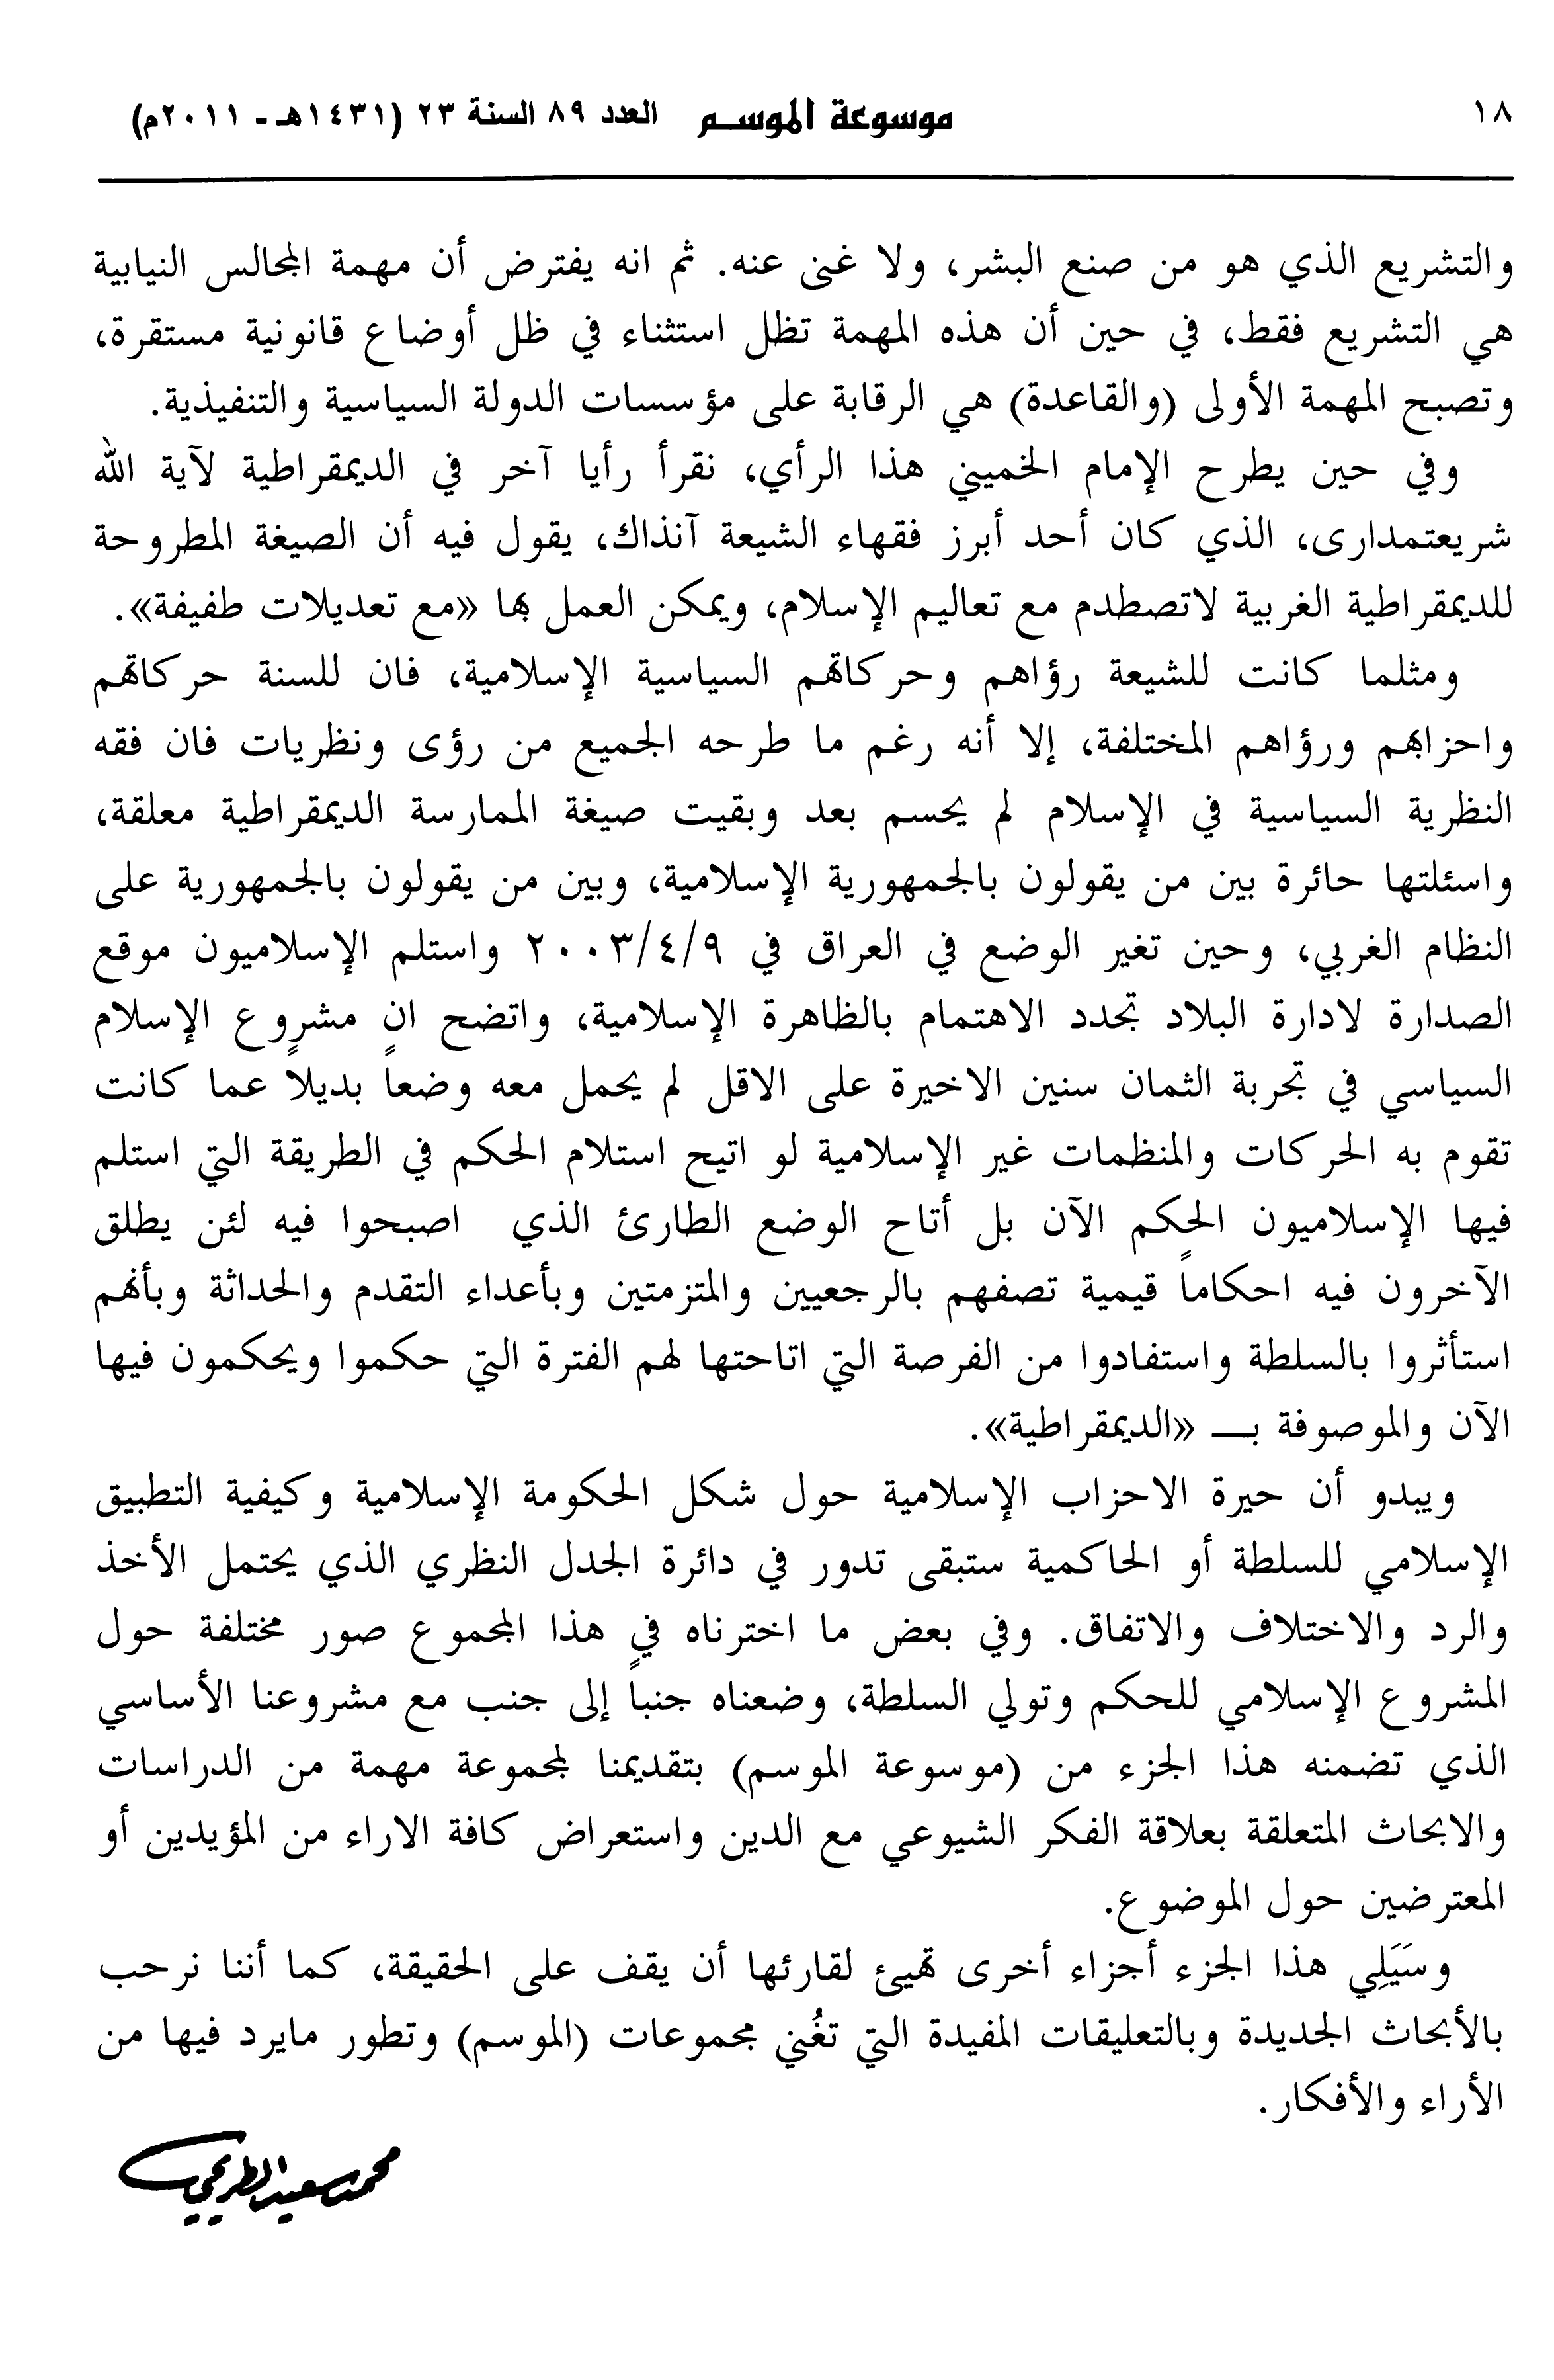 ١٨ موسوعة الموسم العدد ٨٩ السنة ٢٣ (١٤٣١هـ - ٢٠١١م)
والتشريع الذي هو من صنع البشر، ولا غنى عنه. ثم انه يفترض أن مهمة المجالس النيابية
هي التشريع فقط، في حين أن هذه المهمة تظل استثناء في ظل أوضاع قانونية مستقرة،
وتصبح المهمة الأولى (والقاعدة) هي الرقابة على مؤسسات الدولة السياسية والتنفيذية.
وفي حين يطرح الإمام الخميني هذا الرأي، نقرأ رأيا آخر في الديمقراطية لآية الله
شريعتمدارى، الذي كان أحد أبرز فقهاء الشيعة آنذاك، يقول فيه أن الصيغة المطروحة
للديمقراطية الغربية لاتصطدم مع تعاليم الإسلام، ويمكن العمل بها «مع تعديلات طفيفة».
ومثلما كانت للشيعة رؤاهم وحركاتهم السياسية الإسلامية، فان للسنة حركاتهم
واحزابهم ورؤاهم المختلفة، إلا أنه رغم ما طرحه الجميع من رؤى ونظريات فان فقه
النظرية السياسية في الإسلام لم يحسم بعد وبقيت صيغة الممارسة الديمقراطية معلقة،
واسئلتها حائرة بين من يقولون بالجمهورية الإسلامية، وبين من يقولون بالجمهورية على
النظام الغربي، وحين تغير الوضع في العراق في ٢٠٠٣/٤/٩ واستلم الإسلاميون موقع
الصدارة لادارة البلاد تجدد الاهتمام بالظاهرة الإسلامية، واتضح ان مشروع الإسلام
السياسي في تجربة الثمان سنين الاخيرة على الاقل لم يحمل معه وضعاً بديلاً عما كانت
تقوم به الحركات والمنظمات غير الإسلامية لو اتيح استلام الحكم في الطريقة التي استلم
فيها الإسلاميون الحكم الآن بل أتاح الوضع الطارئ الذي اصبحوا فيه لئن يطلق
الآخرون فيه احكاماً قيمية تصفهم بالرجعيين والمتزمتين وبأعداء التقدم والحداثة وبأنهم
استأثروا بالسلطة واستفادوا من الفرصة التي اتاحتها لهم الفترة التي حكموا ويحكمون فيها
الآن والموصوفة بـــ «الديمقراطية».
ويبدو أن حيرة الاحزاب الإسلامية حول شكل الحكومة الإسلامية وكيفية التطبيق
الإسلامي للسلطة أو الحاكمية ستبقى تدور في دائرة الجدل النظري الذي يحتمل الأخذ
والرد والاختلاف والاتفاق. وفي بعض ما اخترناه في هذا المجموع صور مختلفة حول
المشروع الإسلامي للحكم وتولي السلطة، وضعناه جنباً إلى جنب مع مشروعنا الأساسي
الذي تضمنه هذا الجزء من (موسوعة الموسم) بتقديمنا لمجموعة مهمة من الدراسات
والابحاث المتعلقة بعلاقة الفكر الشيوعي مع الدين واستعراض كافة الاراء من المؤيدين أو
المعترضين حول الموضوع.
وسَيَلِي هذا الجزء أجزاء أخرى تهيئ لقارئها أن يقف على الحقيقة، كما أننا نرحب
بالأبحاث الجديدة وبالتعليقات المفيدة التي تغُني مجموعات (الموسم) وتطور مايرد فيها من
الأراء والأفكار.
محمد سعيد الطريحي